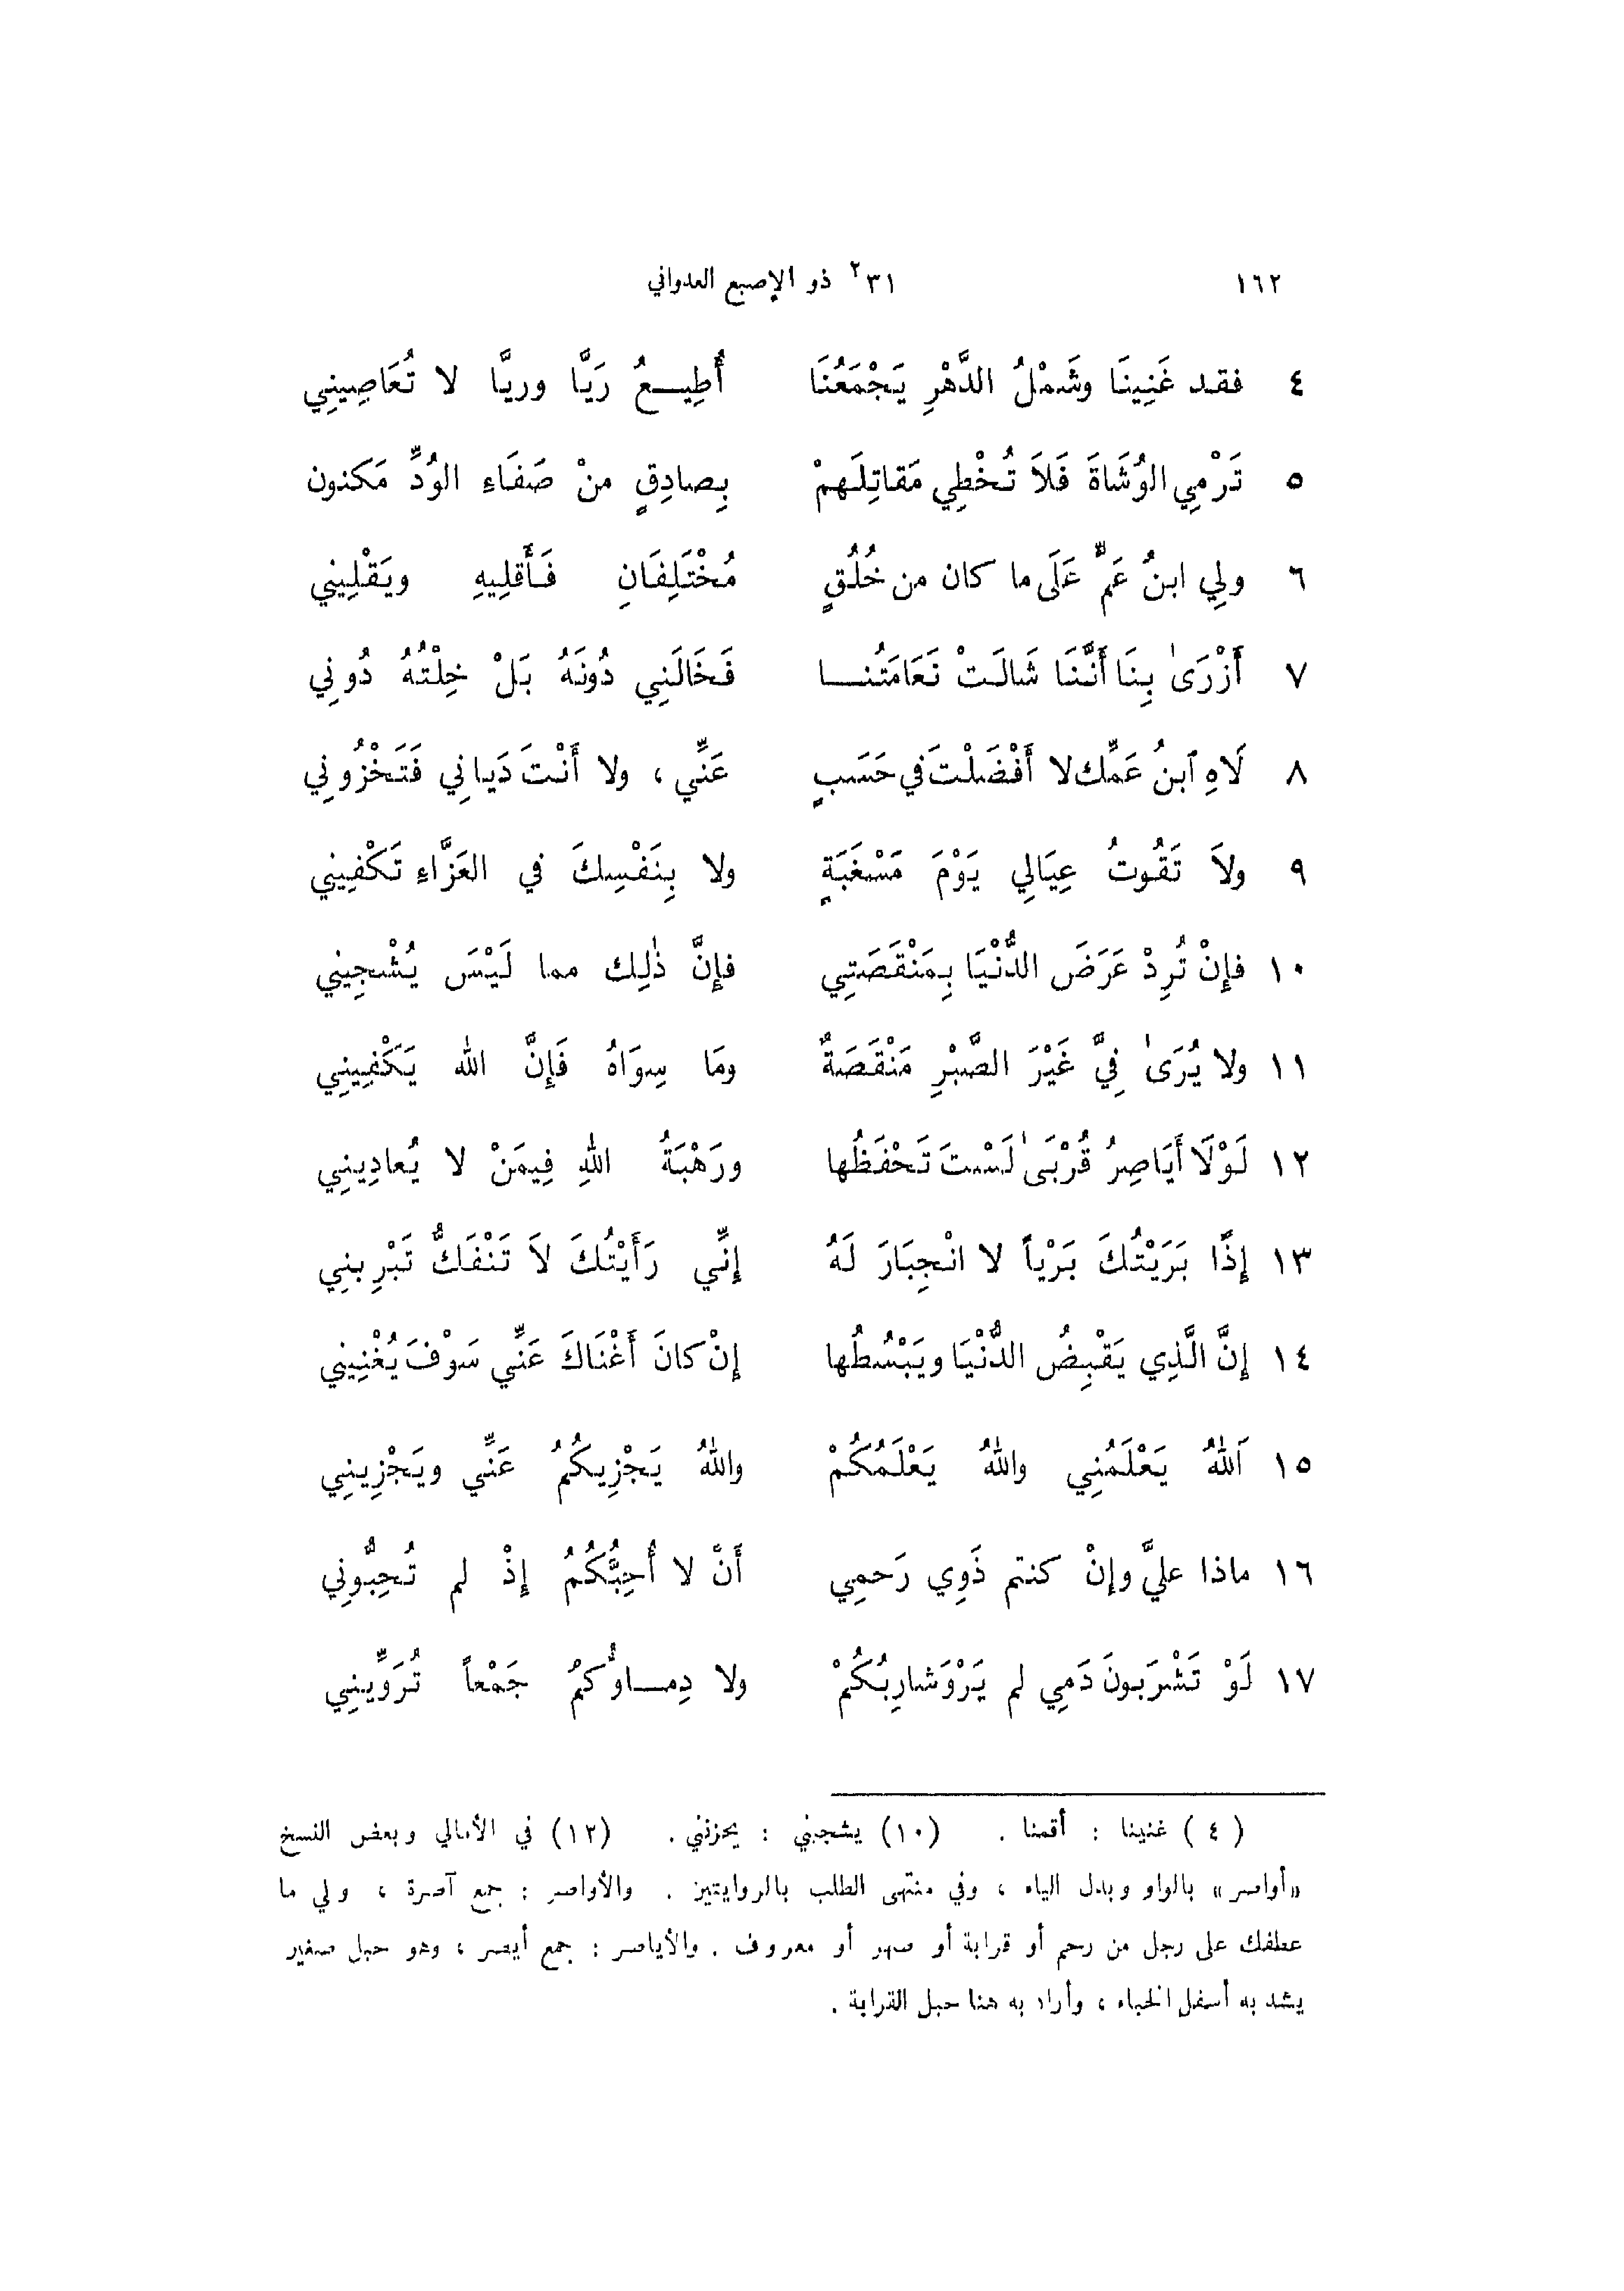 ١٦٢ ٣١٢ ذو الإصبع العدواني
٤ فقد غَنِينَا وشَمْلُ الدَّهْرِ يَجْمَعُنَا أُطِيــعُ رَيَّا وريَّا لا تُعَاصِينِي
٥ تَرْمِي الوُشَاةَ فَلاَ تُخْطِي مَقاتِلَهمْ بِصادِقٍ منْ صَفَاءِ الوُدِّ مَكنون
٦ ولِي ابنُ عَمٍّ عَلَى ما كان من خُلُقٍ مُخْتَلِفَانِ فَأَقلِيهِ ويَقْلِيني
٧ أَزْرَىٰ بِنَا أَنَّنَا شَالَتْ نَعَامَتُنــا فَخَالَنِي دُونَهُ بَلْ خِلْتُهُ دُونِي
٨ لَاهِ ٱبنُ عَمِّك لا أَفْضَلْتَ في حَسَبٍ عَنِّي ، ولا أَنْتَ دَيانِي فَتَخْزُونِي
٩ ولاَ تَقُوتُ عِيَالِي يَوْمَ مَسْغَبَةٍ ولا بِنَفْسِكَ في العَزَّاءِ تَكْفِينِي
١٠ فإِنْ تُرِدْ عَرَضَ الدُّنْيَا بِمَنْقَصَتِي فإِنَّ ذٰلِك مما لَيْسَ يُشْجِيني
١١ ولا يُرَىٰ فِيَّ غَيْرَ الصَّبْرِ مَنْقَصَةٌ ومَا سِوَاهُ فَإِنَّ الله يَكْفِينِي
١٢ لَوْلَا أَيَاصِرُ قُرْبَىٰ لَسْتَ تَحْفَظُها ورَهْبَةُ اللهِ فِيمَنْ لا يُعادِينِي
١٣ إِذًا بَرَيْتُكَ بَرْياً لا انْجِبَارَ لَهُ إِنِّي رَأَيْتُكَ لاَ تَنْفَكُّ تَبْرِيني
١٤ إِنَّ الَّذِي يَقْبِضُ الدُّنْيَا ويَبْسُطُها إِنْ كانَ أَغْنَاكَ عَنِّي سَوْفَ يُغْنِيني
١٥ اَللهُ يَعْلَمُنِي واللهُ يَعْلَمُكُمْ واللهُ يَجْزِيكُمُ عَنِّي ويَجْزِينِي
١٦ ماذا عليَّ وإنْ كنتم ذَوِي رَحمِي أَنْ لا أُحِبُّكُمُ إِذْ لم تُحِبُّونِي
١٧ لَوْ تَشْرَبونَ دَمِي لم يَرْوَ شارِبُكُمْ ولا دِمــاوُكمُ جَمْعاً تُرَوِّينِي
( ٤ ) غنينا : أقمنا . (١٠) يشجيني : يحزنني . (١٢) في الأمالي وبعض النسخ
« أواصر » بالواو وبدل الياء ، وفي منتهى الطلب بالروايتين . والأواصر : جمع آصرة ، ولي ما
عطفك على رجل من رحم أو قرابة أو صهر أو معروف . والأياصر : جمع أيصر ، وهو حبل صغير
يشد به أسفل الخباء ، وأراد به هنا حبل القرابة .